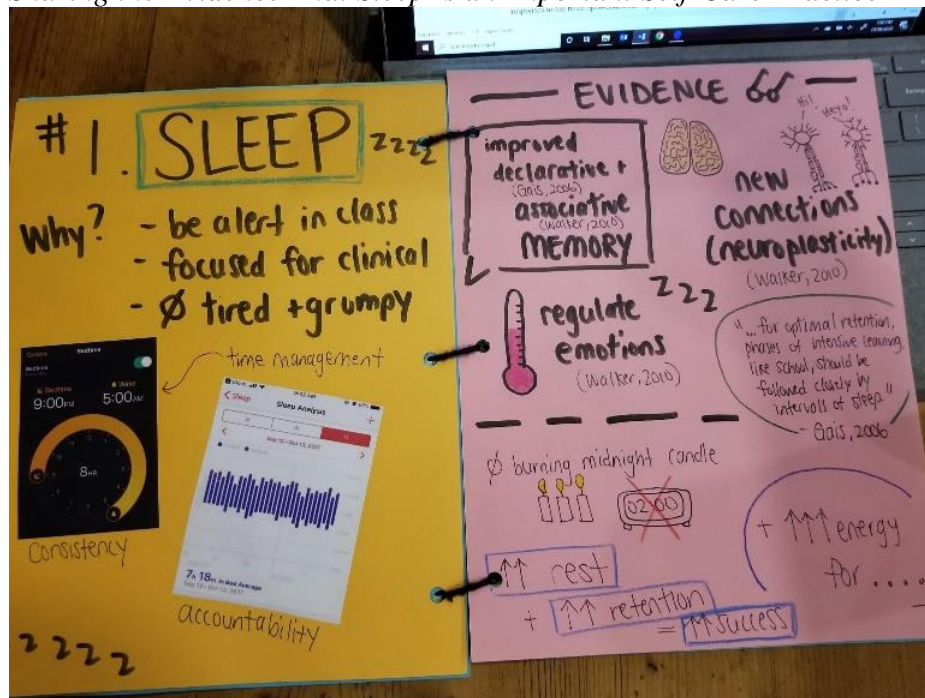 #1. SLEEP zzzz
Why? - be alert in class
- focused for clinical
- Ø tired + grumpy
time management
Bedtime
Bedtime
Wake
9:00PM
5:00AM
8HR
consistency
Sleep
Sleep Analysis
7h 18m In Bed Average
Sep 12 - Oct 12, 2017
accountability
zzzz
EVIDENCE
improved
declarative +
(Gais, 2006)
associative
(Walker, 2010)
MEMORY
Hi!
Heya!
new
connections
(neuroplasticity)
(Walker, 2010)
zzz
regulate
emotions
(Walker, 2010)
"...for optimal retention,
phases of intensive learning,
like school, should be
followed closely by
intervals of sleep"
- Gais, 2006
Ø burning midnight candle
02:00
↑↑ rest
+ ↑↑ retention
= ↑↑ success
+ ↑↑↑ energy
for ....